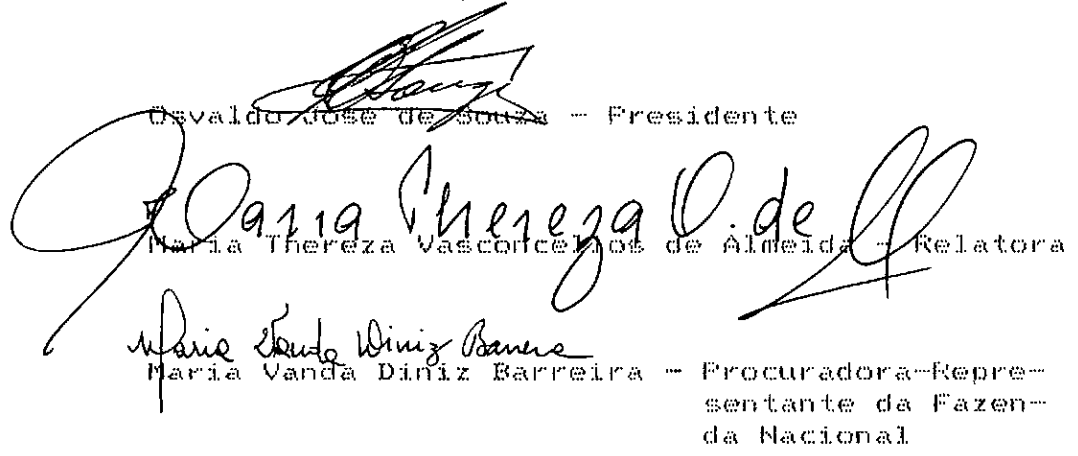 Osvaldo José de Souza - Presidente
Maria Thereza V. de
Maria Thereza Vasconcellos de Almeida - Relatora
Maria Vanda Diniz Barreira
Maria Vanda Diniz Barreira - Procuradora-Repre-
sentante da Fazen-
da Nacional